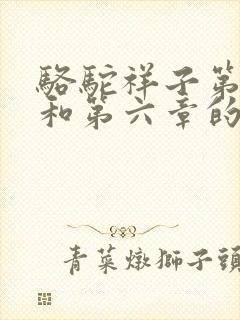 駱駝祥子第
和第六章的
青菜燉獅子頭